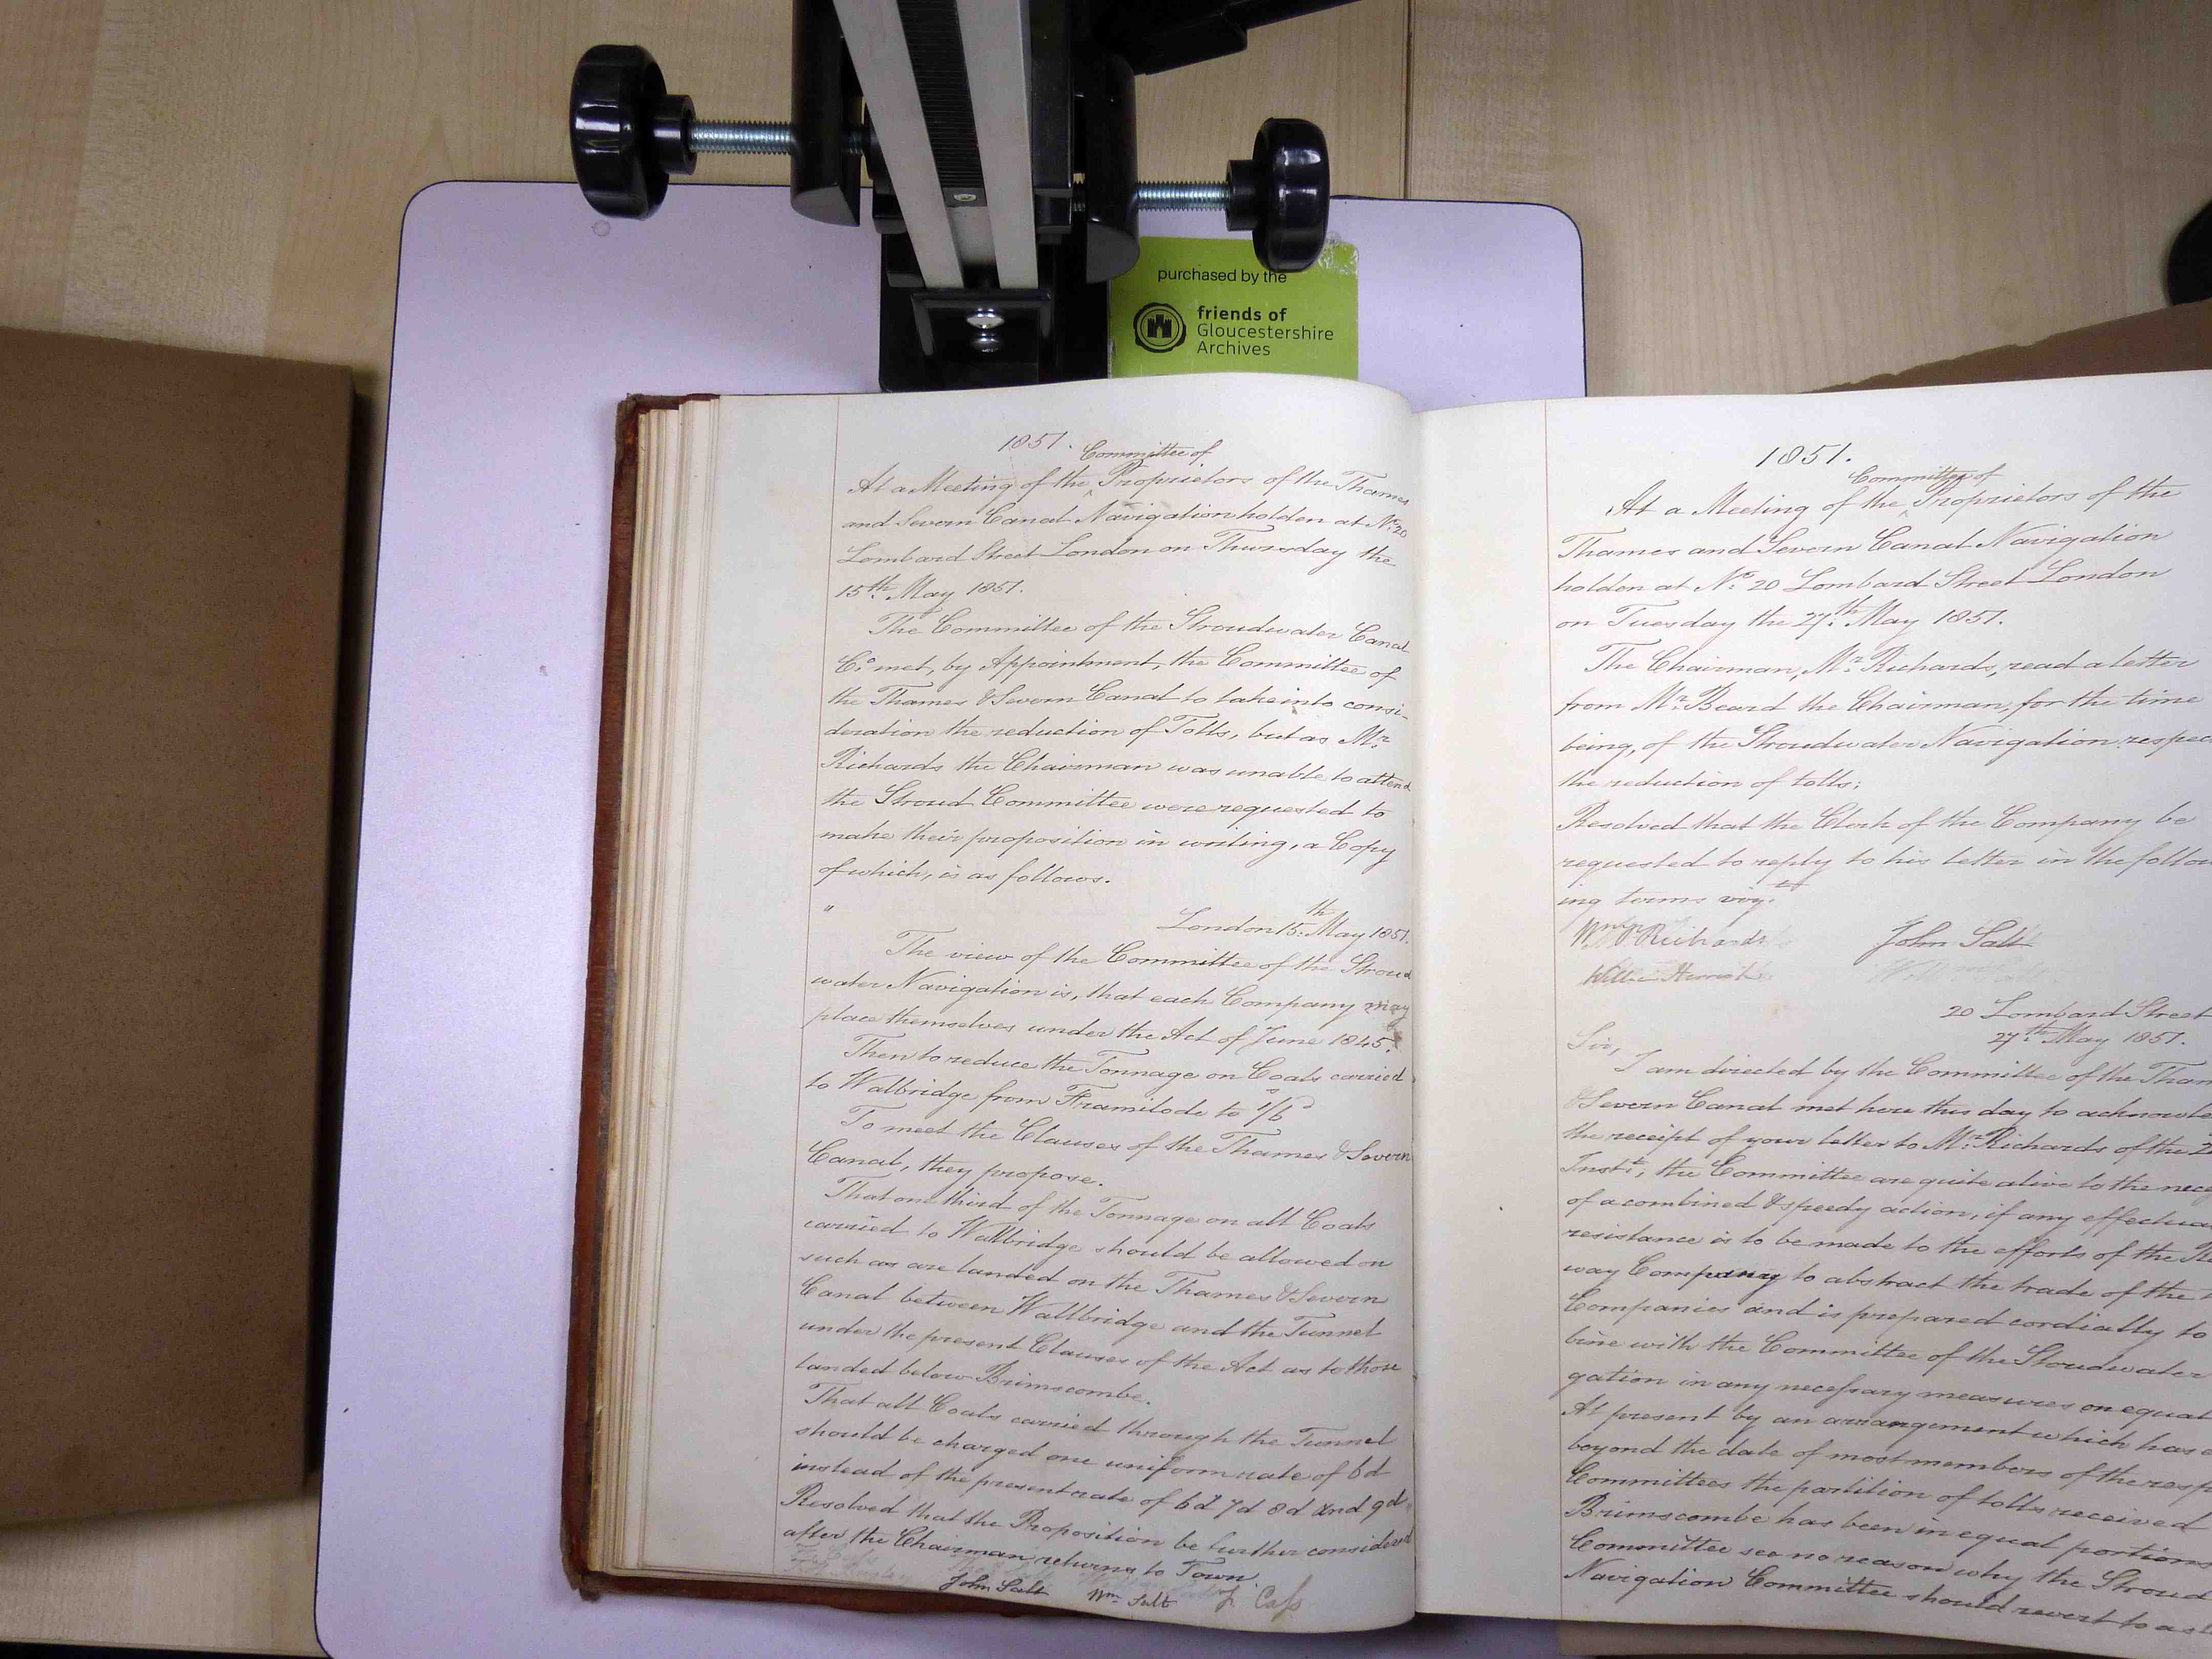 purchased by the
friends of
Gloucestershire
Archives
1851.
Committee of
At a Meeting of the ^ Proprietors of the Thames
and Severn Canal Navigation holden at No. 20
Lombard Street London on Thursday the
15th. May 1851.
The Committee of the Stroudwater Canal
Co. met, by Appointment, the Committee of
the Thames & Severn Canal to take into consi-
deration the reduction of Tolls, but as Mr.
Richards the Chairman was unable to attend
the Stroud Committee were requested to
make their proposition in writing, a Copy
of which, is as follows.
" London 15th. May 1851.
The view of the Committee of the Stroud
water Navigation is, that each Company may
place themselves under the Act of June 1845.
Then to reduce the Tonnage on Coals carried
to Walbridge from Framilode to 1/6
To meet the Clauses of the Thames & Severn
Canal, they propose.
That one third of the Tonnage on all Coals
carried to Wallbridge should be allowed on
such as are landed on the Thames & Severn
Canal between Wallbridge and the Tunnel
under the present Clauses of the Act as to those
landed below Brimscombe.
That all Coals carried through the Tunnel
should be charged one uniform rate of 6d
instead of the present rate of 6d 7d 8d and 9d
Resolved that the Proposition be further considered
after the Chairman returns to Town.
John Salt Wm. Salt J. Cass
1851.
Committee of
At a Meeting of the ^ Proprietors of the
Thames and Severn Canal Navigation
holden at No. 20 Lombard Street London
on Tuesday the 27th. May 1851.
The Chairman, Mr. Richards, read a letter
from Mr. Beard the Chairman, for the time
being, of the Stroudwater Navigation respec
the reduction of tolls:
Resolved that the Clerk of the Company be
requested to reply to his letter in the follow
ing terms vizt.
Wm. P. Richards John Salt
20 Lombard Street
27th. May 1851.
Sir,
I am directed by the Committee of the Tham
& Severn Canal met here this day to acknowle
the receipt of your letter to Mr. Richards of the 2
Instt., the Committee are quite alive to the nece
of a combined & speedy action, if any effectua
resistance is to be made to the efforts of the Ra
way Company to abstract the trade of the
Companies and is prepared cordially to
bine with the Committee of the Stroudwater
gation in any necessary measures on equal
At present by an arrangement which has e
beyond the date of most members of the resp
Committees the partition of tolls received
Brimscombe has been in equal portions
Committee see no reason why the Stroud
Navigation Committee should revert to a